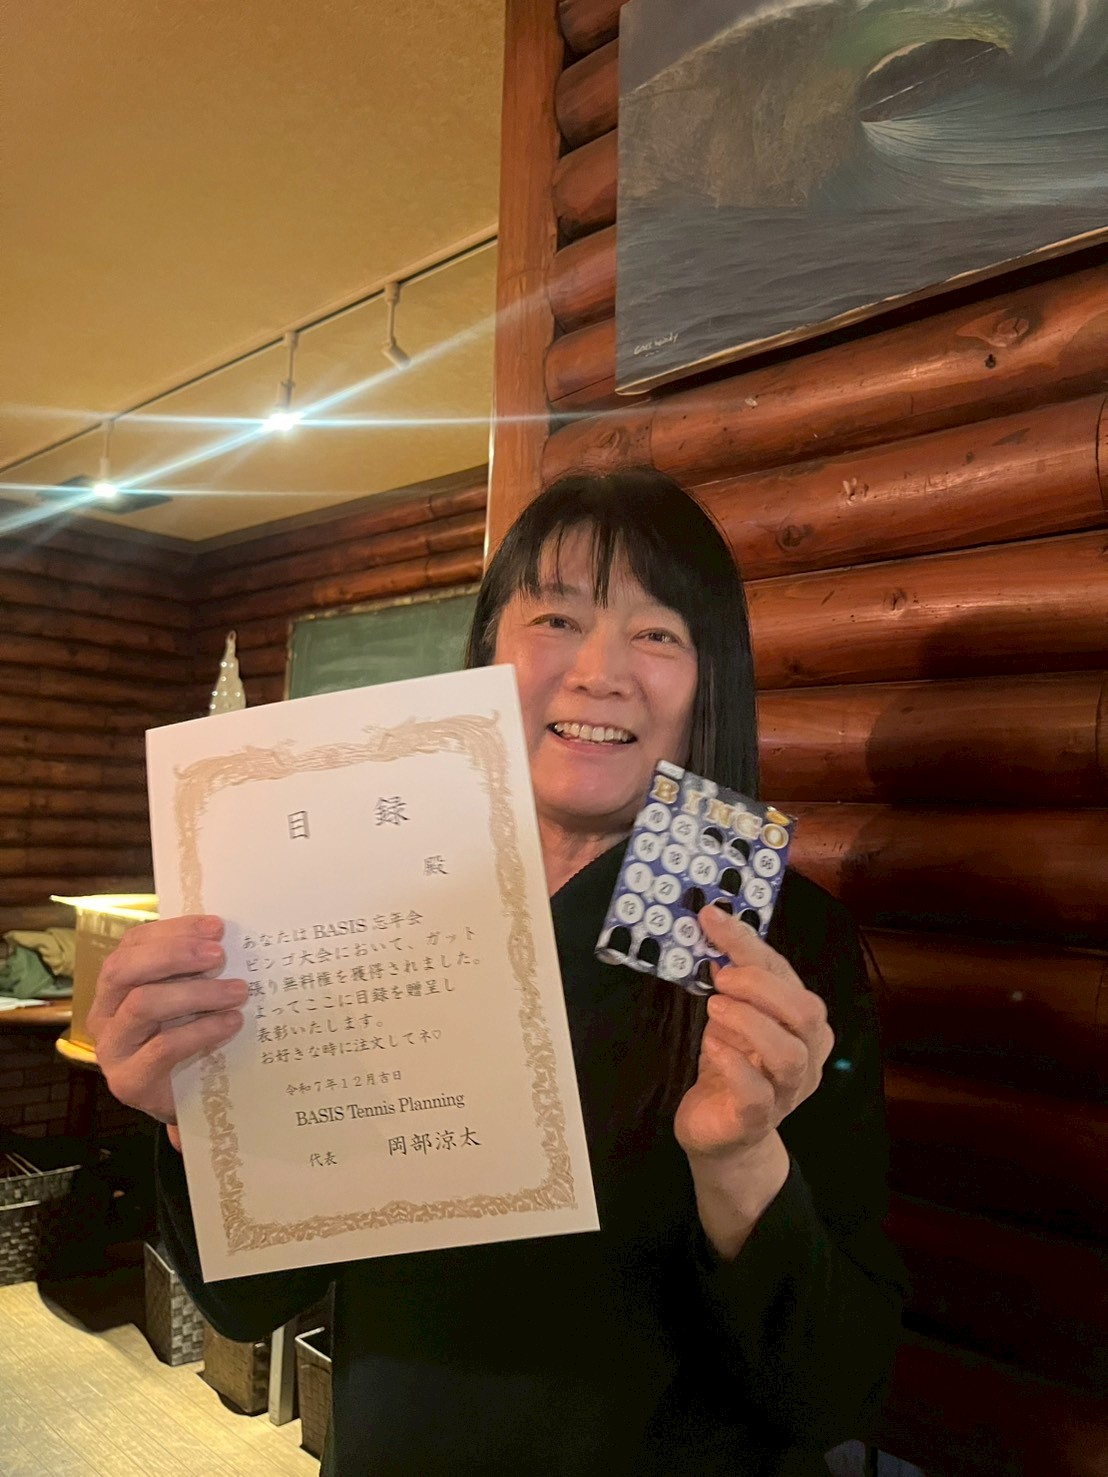 目録
殿
あなたはBASIS忘年会
ビンゴ大会において、ガット
張り無料権を獲得されました。
よってここに目録を贈呈し
表彰いたします。
お好きな時に注文してネ♡
令和7年12月吉日
BASIS Tennis Planning
代表 岡部涼太
BINGO
10 25 66
14 18 34 75
1 27
13 23 40
33